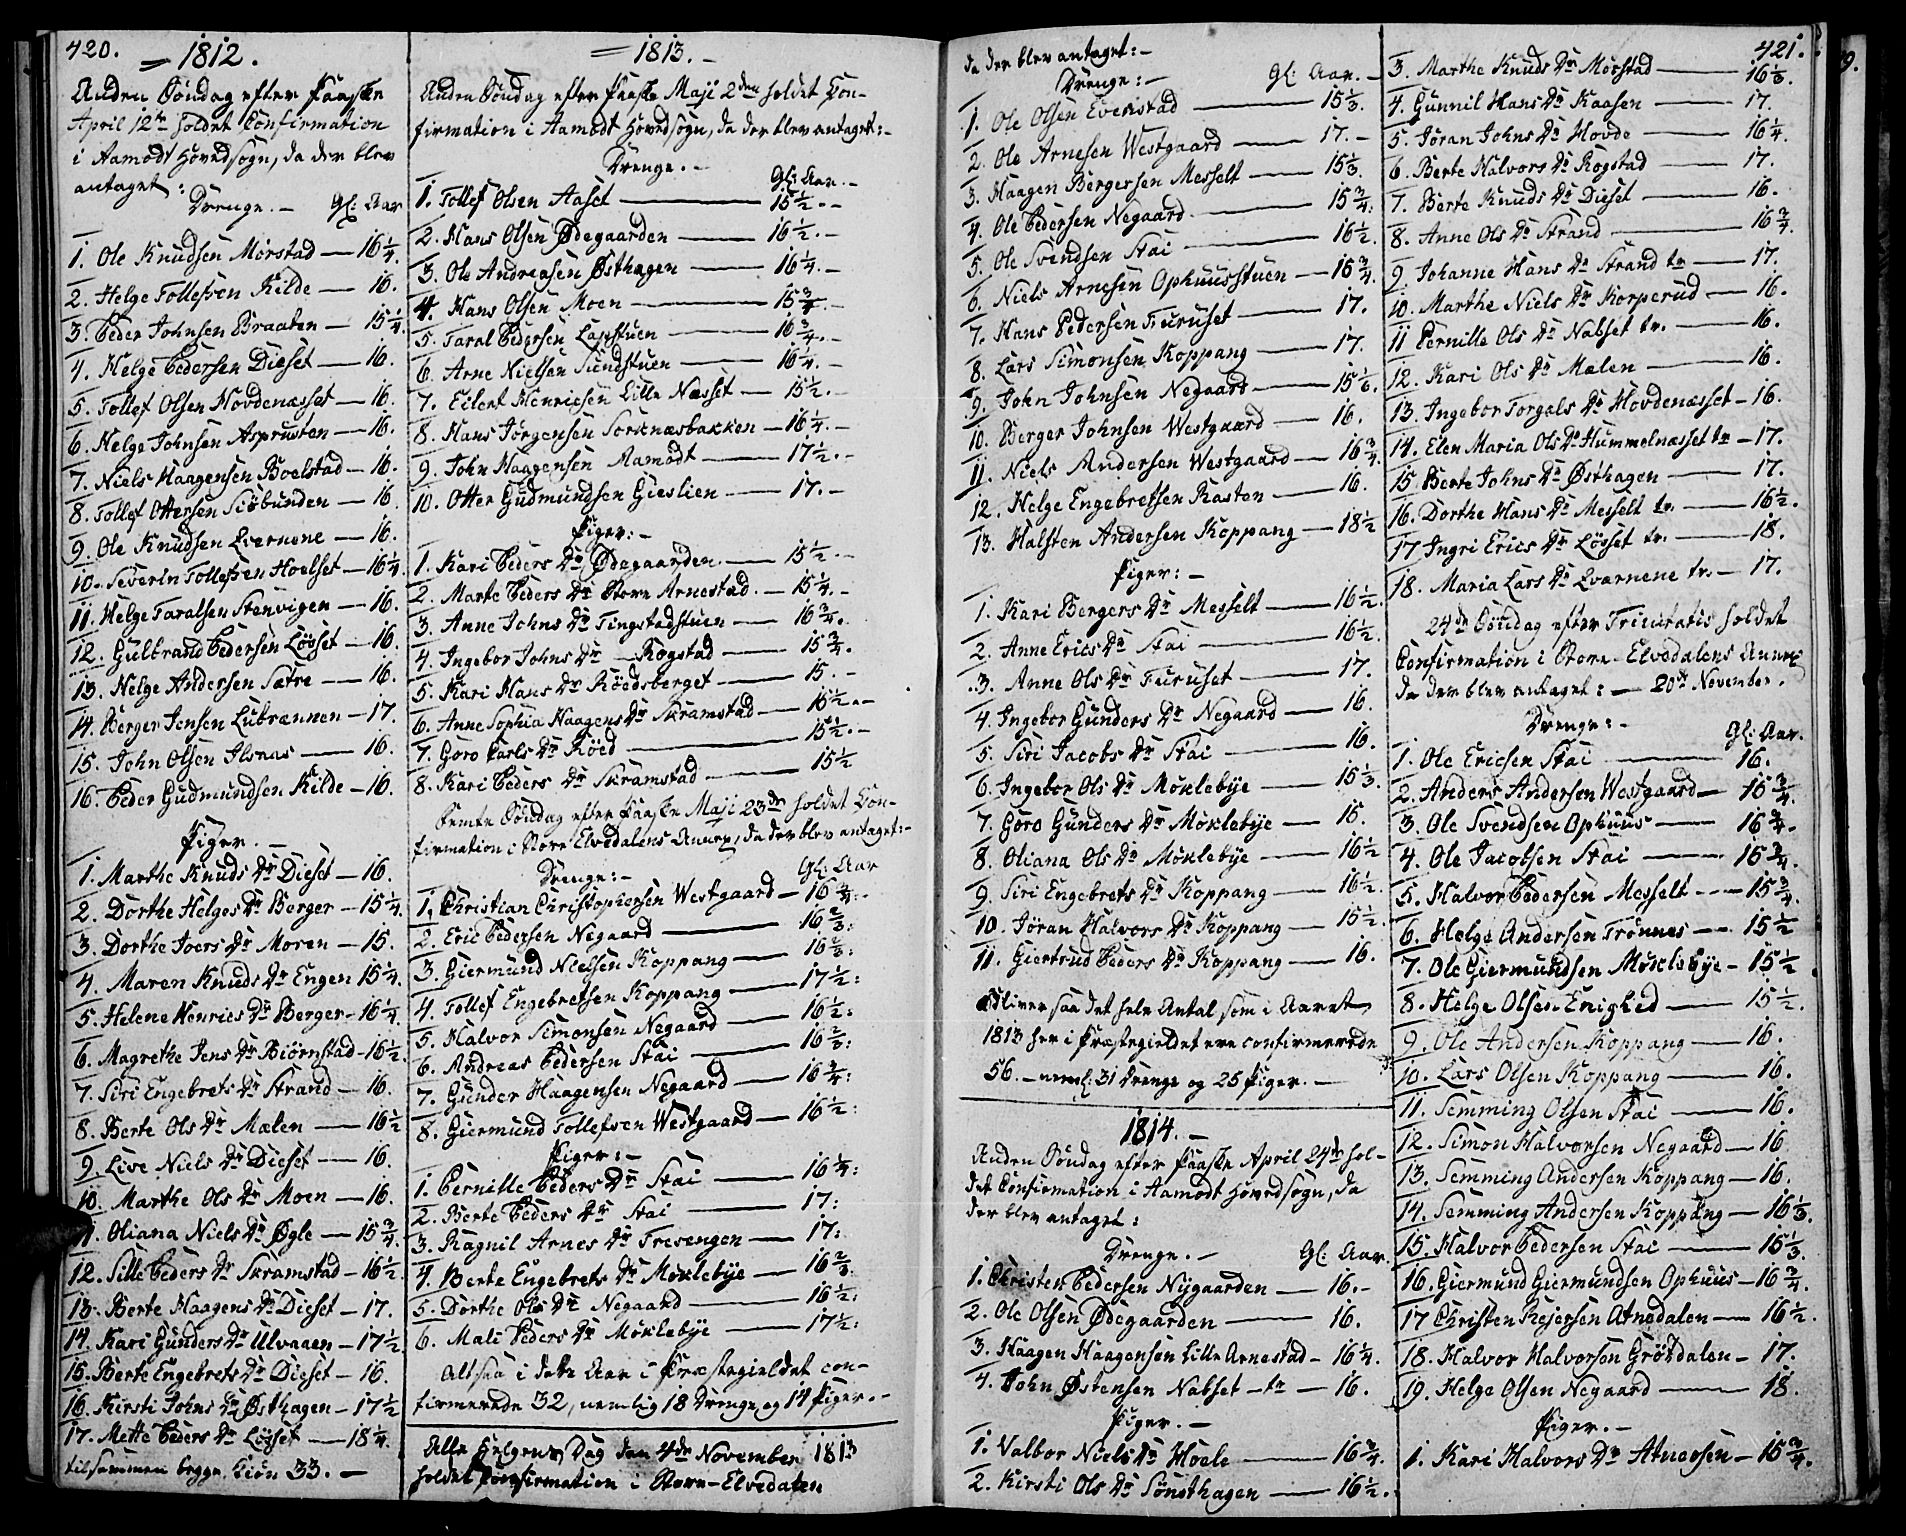 420.
= 1812.
Anden Søndag efter Paaske
April 12te holdet Confirmation
i Aamodt Hovedsogn, da der blev
antaget:
Drenge. - Gl: Aar
1. Ole Knudsen Morstad — 16 1/4.
2. Helge Tollefsen Kilde — 16.
3. Peder Johnsen Braaten — 15 1/4.
4. Helge Pedersen Dieset — 16.
5. Tollef Olsen Hovdenæsset — 16.
6. Helge Johnsen Asprusten — 16.
7. Niels Haagensen Boelstad — 16.
8. Tollef Ottersen Siöbunden — 16.
9. Ole Knudsen Qvernene — 16.
10. Severin Tollefsen Hoelset — 16 1/4.
11. Helge Taralsen Stenvigen — 16.
12. Gulbrand Pedersen Løset — 16.
13. Helge Andersen Sætre — 16.
14. Berger Jensen Lubrænnen — 17.
15. John Olsen Ilsaas — 16.
16. Peder Gudmundsen Kilde — 16.
Piger. -
1. Marthe Knuds Dr Dieset — 16.
2. Dorthe Helges Dr Berger — 15 1/4.
3. Dorthe Joers Dr Moren — 15.
4. Maren Knuds Dr Engen 15 1/4.
5. Helene Henrics Dr Berger — 16 1/4.
6. Magrethe Jens Dr Biørnstad — 16 1/2.
7. Siri Engebrets Dr Strand — 16.
8. Berte Ols Dr Mælen — 16 1/2
9. Live Niels Dr Dieset — 16.
10. Marthe Ols Dr Moen — 16.
11. Oliana Niels Dr Øgle — 15 3/4.
12. Sille Peders Dr Skramstad — 16 1/2
13. Berte Haagens Dr Dieset — 17.
14. Kari Gunders Dr Ulvaaen — 17 1/2
15. Berte Engebrets Dr Dieset — 16.
16. Kirsti Johns Dr Østhagen — 17 1/2
17. Mette Peders Dr Løset — 18 1/4.
tilsammen begge Kiøn 33. -
= 1813. -
Anden Søndag efter Paaske Maji 2den holdet Con-
firmation i Aamodt Hovedsogn, da der blev antaget: -
Drenge. -
Gl: Aar. -
1. Tollef Olsen Aaset — 15 1/2. -
2. Hans Olsen Ødegaarden — 16 1/2. -
3. Ole Andreasen Østhagen — 16 1/4. -
4. Hans Olsen Moen — 15 3/4. -
5. Taral Pedersen Løsetstuen — 16 3/4. -
6. Arne Nielsen Sundstuen — 16 1/4. -
7. Eilert Henricsen Lille Næsset — 15 1/2. -
8. Hans Jörgensen Sorknæsbakken — 16 1/4. -
9. John Haagensen Aamodt — 17 1/2. -
10. Otter Gudmundsen Gieslien — 17. -
Piger: -
1. Kari Peders Dr Ødegaarden — 15 1/2. -
2. Marte Peders Dr Store Arnestad. — 15 1/4. -
3. Anne Johns Dr Tingstadstuen — 16 3/4.
4. Ingebor Johns Dr Rogstad — 15 3/4.
5. Kari Hans Dr Röedsberget — 15. -
6. Anne Sophia Haagens Dr Skramstad — 15 1/2. -
7. Goro Carls Dr Röed — 15 1/2. -
8. Kari Peders Dr Skramstad — 15 1/2
Femte Søndag efter Paaske Maji 23de holdet Con-
firmation i Store Elvedalens Annex, da der blev antaget: -
Drenge: - Gl: Aar
1. Christian Christophersen Westgaard — 16 3/4. -
2. Eric Pedersen Negaard — 16 2/3:
3. Giermund Nielsen Koppang — 16 2/3:
4. Tollef Engebretsen Koppang — 17 1/2:
5. Halvor Simonsen Negaard — 16 1/2:
6. Andreas Pedersen Stai — 16 2/3:
7. Gunder Haagensen Negaard — 16 3/4:
8. Giermund Tollefsen Westgaard — 16 1/2:
Piger: -
1. Pernille Peders Dr Stai — 16 1/4:
2. Berte Peders Dr Stai — 17:
3. Ragnil Arnes Dr Tresengen — 17:
4. Berte Engebrets Dr Möklebye — 16 2/3.
5. Dorthe Ols Dr Negaard — 16 1/2:
6. Mali Peders Dr Möklebye — 17 1/2:
Altsaa i dette Aar i Præstegieldet con-
firmerede 32, nemlig 18 Drenge og 14 Piger. -
Alle Helgens Dag den 4de November 1813
holdet Confirmation i Store-Elvedalen
da der blev antaget: -
Drenge: - Gl: Aar. -
1. Ole Olsen Evenstad — 15 1/3.
2. Ole Arnesen Westgaard — 17. -
3. Haagen Bergersen Messelt — 15 1/3.
4. Ole Pedersen Negaard — 15 3/4:
5. Ole Svendsen Stai — 16 1/2.
6. Niels Arnesen Ophuusstuen — 15 3/4.
7. Hans Pedersen Furuset — 17.
8. Lars Simonsen Koppang — 17.
9. John Johnsen Negaard — 15 1/6.
10. Berger Johnsen Westgaard — 16.
11. Niels Andersen Westgaard — 16 3/4.
12. Helge Engebretsen Rasten — 16.
13. Halsten Andersen Koppang — 18 1/2
Piger: -
1. Kari Bergers Dr Messelt — 16 1/2.
2. Anne Erics Dr Stai — 16 1/2.
3. Anne Ols Dr Furuset — 17.
4. Ingebor Gunders Dr Negaard — 16.
5. Siri Jacobs Dr Stai — 16.
6. Ingebor Ols Dr Möklebye — 15 1/3.
7. Goro Gunders Dr Möklebye — 15.
8. Oliana Ols Dr Möklebye — 16 1/2
9. Siri Engebrets Dr Koppang — 16 1/2.
10. Jöran Halvors Dr Koppang — 15 1/2.
11. Giertrud Peders Dr Koppang — 16.
Bliver saa det hele Antal som i Aaret
1813 her i Præstegieldet ere confirmerede
56. - neml: 31 Drenge og 25 Piger. -
1814. -
Anden Søndag efter Paaske April 24de hol-
det Confirmation i Aamodt Hovedsogn, da
der blev antaget:
Drenge. - Gl: Aar.
1. Christen Pedersen Nygaarden — 16. -
2. Ole Olsen Ødegaarden — 16.
3. Haagen Haagensen Lille Arnestad — 16 1/4.
4. John Østensen Nabset — tr — 16.
Piger. -
1. Valbor Niels Dr Hoele — 16 3/4.
2. Kirsti Ols Dr Sönsthagen — 16 1/2.
421.
3. Marthe Knuds Dr Morstad — 16 1/3.
4. Gunnil Hans Dr Kaasen — 17.
5. Jöran Johns Dr Hovde — 16 1/4.
6. Berte Halvors Dr Rogstad — 17.
7. Berte Knuds Dr Dieset — 16.
8. Anne Ols Dr Strand — 16 3/4.
9. Johanne Hans Dr Strand tr — 17.
10. Marthe Niels Dr Korperud — 16.
11 Pernille Ols Dr Nabset tr. — 16.
12. Kari Ols Dr Mælen — 16.
13. Ingebor Torgals Dr Hovdenæsset — 16.
14. Elen Maria Ols Dr Hummelnæsset tr — 17.
15 Berte Johns Dr Østhagen — 17.
16. Dorthe Hans Dr Messelt tr. — 16 1/2.
17 Ingri Erics Dr Løsset tr. — 18.
18. Maria Lars Dr Qværnene tr. — 17.
24de Søndag efter Trinitatis holdet
Confirmation i Store-Elvedalens Annex
da der blev antaget: - 20de November.
Drenge: -
Gl: Aar.
1. Ole Ericsen Stai — 16.
2. Anders Andersen Westgaard — 15 3/4.
3. Ole Svendsen Ophuus — 16 3/4.
4. Ole Jacobsen Stai — 15 3/4.
5. Halvor Pedersen Messelt — 15 3/4.
6. Helge Andersen Trönnes — 15 1/2
7. Ole Giermundsen Möklebye — 15 1/2
8. Helge Olsen Enighed — 15 1/2.
9. Ole Andersen Koppang — 16.
10. Lars Olsen Koppang — 16.
11. Semming Olsen Stai — 16.
12. Simon Halvorsen Negaard — 16
13. Semming Andersen Koppang — 16.
14. Semming Andersen Koppang — 16 1/3.
15. Halvor Pedersen Stai — 15 1/3.
16. Giermund Giermundsen Ophuus — 16 3/4.
17 Christen Rejersen Atnedalen — 16 1/2.
18. Halvor Halvorsen Grötdalen — 17.
19. Helge Olsen Negaard — 18.
Piger. -
1. Kari Halvors Dr Atneosen — 15 3/4.